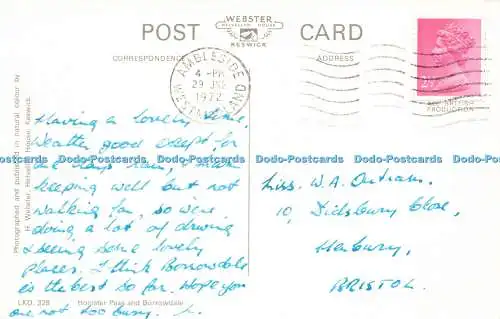 POST CARD
WEBSTER
HELVELLYN HOUSE
KESWICK
CORRESPONDENCE
ADDRESS
AMBLESIDE AND
4 - PM
29 JUL
1972
2½P
ALL BRITISH
PRODUCTION
Photographed and published in natural colour by
H. Webster, Helvellyn House, Keswick.
Having a lovely time,
weather good except for
one days rain,
keeping well but not
walking far, so were
doing a lot of driving
& seeing some lovely
places. I think Borrowdale
is the best so far. Hope you
are not too busy.
Miss. W. A. Outram,
10, Didsbury Close,
Henbury,
BRISTOL.
LKD. 328
Honister Pass and Borrowdale
Dodo-Postcards Dodo-Postcards Dodo-Postcards Dodo-Postcards Dodo-Postcards Dodo-Postcards